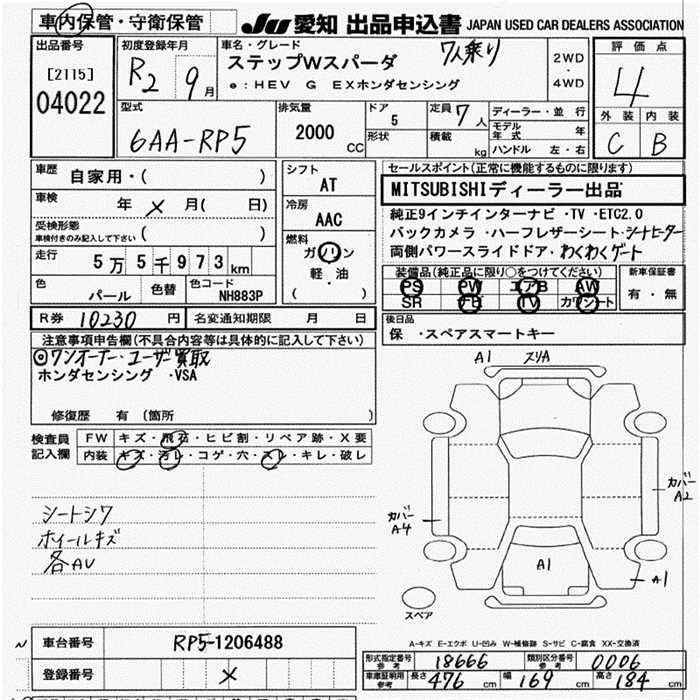 車内保管・守衛保管
JU 愛知 出品申込書 JAPAN USED CAR DEALERS ASSOCIATION
出品番号
[2115]
04022
初度登録年月
R2 9月
車名・グレード
ステップWスパーダ 7人乗り
e:HEV G EXホンダセンシング
2WD
・
4WD
評価点
4
外装 内装
C B
型式
6AA-RP5
排気量
2000 CC
ドア
5
形状
定員 7人
積載 kg
ディーラー・並行
モデル年式 年
ハンドル 左・右
車歴
自家用・( )
車検
年 × 月( 日)
受検形態
車検付きのみ記入して下さい ( )
走行
5万5千973km
色
パール
色替
色コード
NH883P
シフト
AT
冷房
AAC
燃料
ガソリン
軽・油
( )
セールスポイント(正常に機能するものに限ります)
MITSUBISHIディーラー出品
純正9インチインターナビ・TV・ETC2.0
バックカメラ・ハーフレザーシート・シートヒーター
両側パワースライドドア・わくわくゲート
装備品(純正品に限り○をつけてください)
PS PW エアB AW
SR TV
新車保証書
有・無
後日品
保・スペアスマートキー
R券 10230 円
名変通知期限 月 日
注意事項申告欄(不具合内容等は具体的に記入して下さい)
◎ワンオーナー・ユーザー買取
ホンダセンシング ・VSA
修復歴 有 (箇所 )
検査員
記入欄
FW キズ・飛石・ヒビ割・リペア跡・X要
内装 キズ・汚レ・コゲ・穴・スレ・キレ・破レ
シートシワ
ホイールキズ
各AU
A1 スリA
カバー
A4
カバー
A2
A1
A1
スペア
A-キズ E-エクボ U-凹み W-補修跡 S-サビ C-腐食 XX-交換済
車台番号 RP5-1206488
登録番号 ×
形式指定番号
参考
18666
類別区分番号
参考
0006
車庫証明用
参考
長さ 476 cm
幅 169 cm
高さ 184 cm